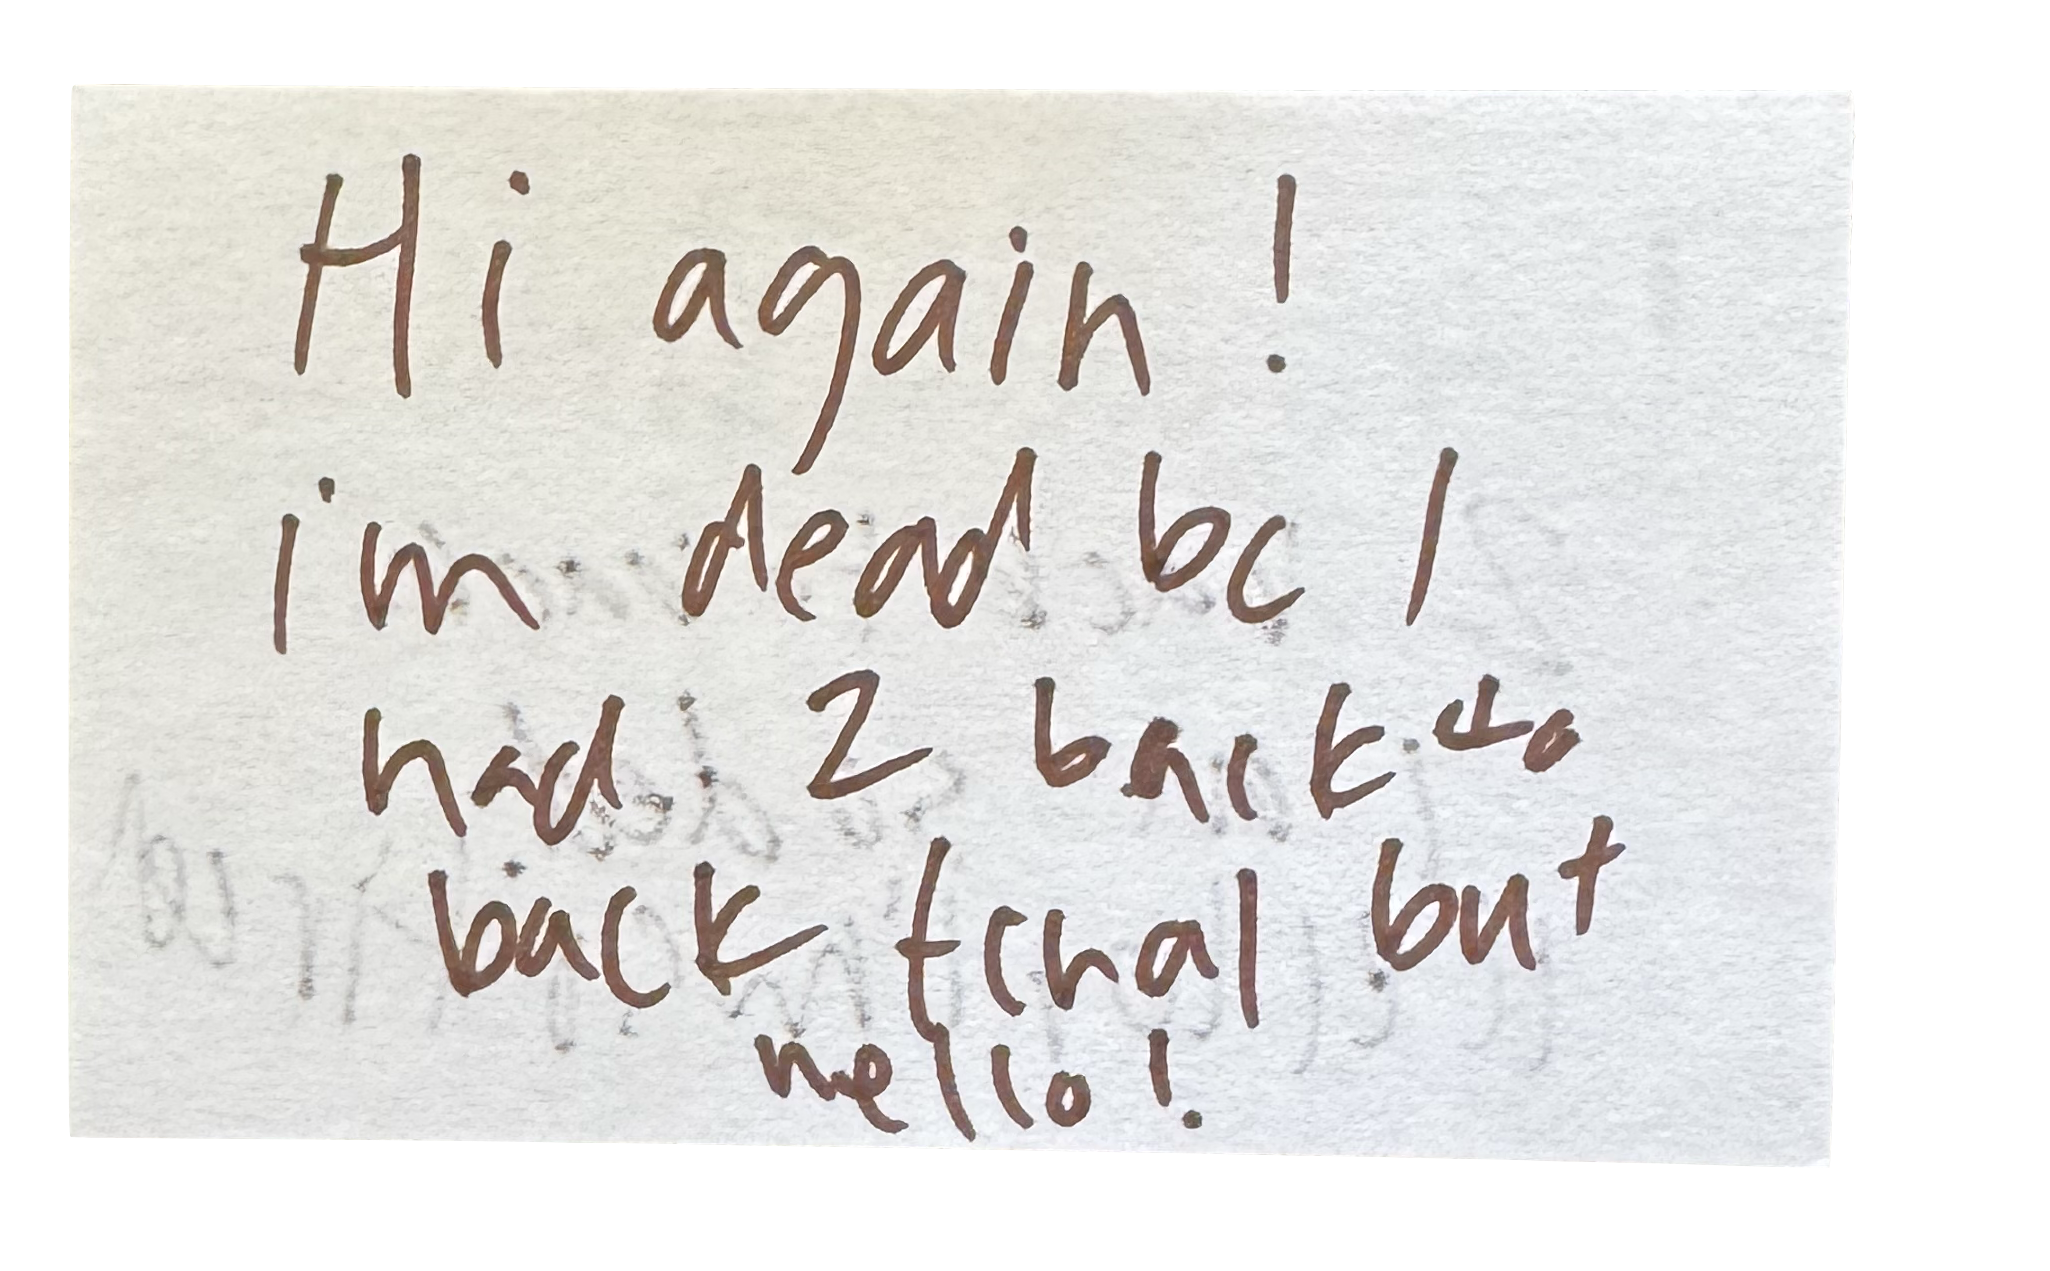 Hi again!
i'm dead bc I
had 2 back to
back tchal but
hello!